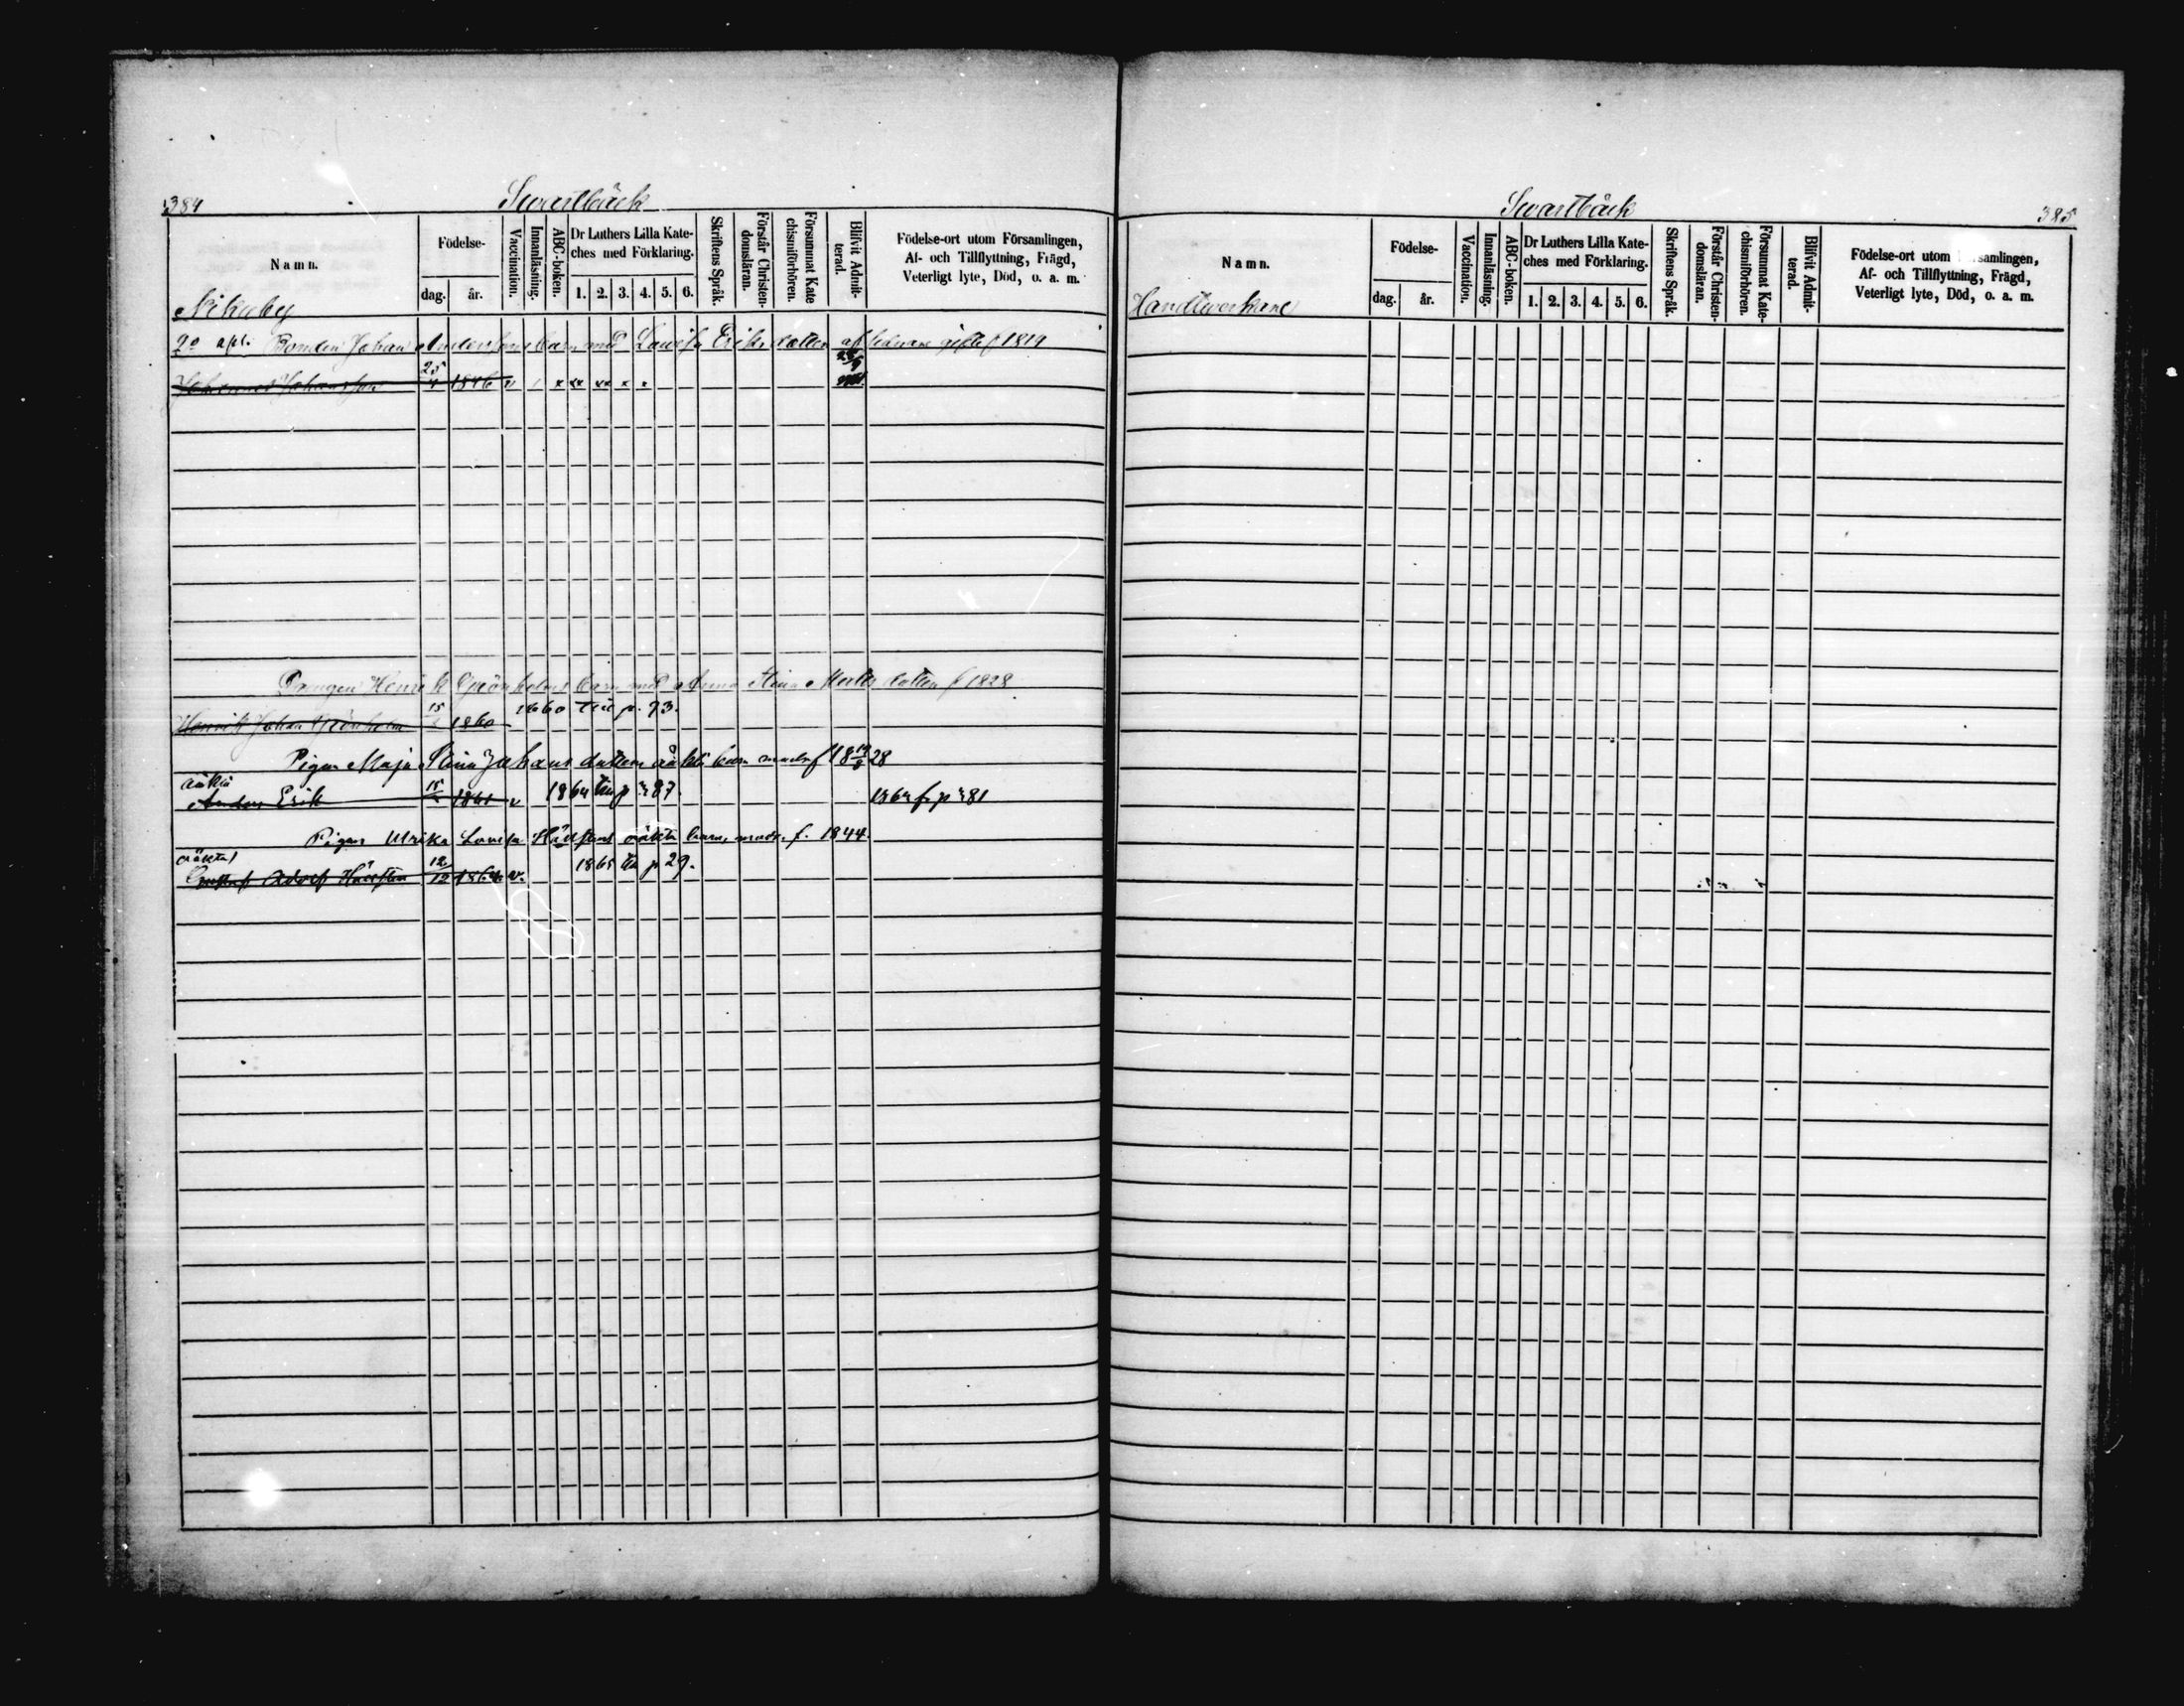 384
Swartbäck
Namn.
Födelse-
dag.
år.
Vaccination.
Innanläsning.
ABC-boken.
Dr Luthers Lilla Kate-
ches med Förklaring.
1. 2. 3. 4. 5. 6.
Skriftens Språk.
Förstår Christen-
domsläran.
Försummat Kate
chismiförhören.
Blifvit Admit-
terad.
Födelse-ort utom Församlingen,
Af- och Tillflyttning, Frägd,
Veterligt lyte, Död, o. a. m.
Nikuby
2o Bonden Johan Anderssons barn med Lovisa Eriks dotter af gifte f 1819
Johannes Johansson 25/4 1846 v
Drengen Henrik Grönholms barn med Anna Stina Matts dotter f 1828
Henrik Johan Grönholm 15 1860 1860 till p. 93.
Pigan Maja Stina Johans dotters oäkta barn modr f 18 28
oäkta
Anders Erik 15 1861 v 1864 till p 87. 1864 fr p 81
Pigan Ulrika Lovisa oäkta barn, modr. f. 1844.
oäkta
Gustaf Adolf 12/12 1864 v. 1865 till p 29.
Swartbäck
385
Namn.
Födelse-
dag.
år.
Vaccination.
Innanläsning.
ABC-boken.
Dr Luthers Lilla Kate-
ches med Förklaring.
1. 2. 3. 4. 5. 6.
Skriftens Språk.
Förstår Christen-
domsläran.
Försummat Kate-
chismiförhören.
Blifvit Admit-
terad.
Födelse-ort utom samlingen,
Af- och Tillflyttning, Frägd,
Veterligt lyte, Död, o. a. m.
Handtwerkare